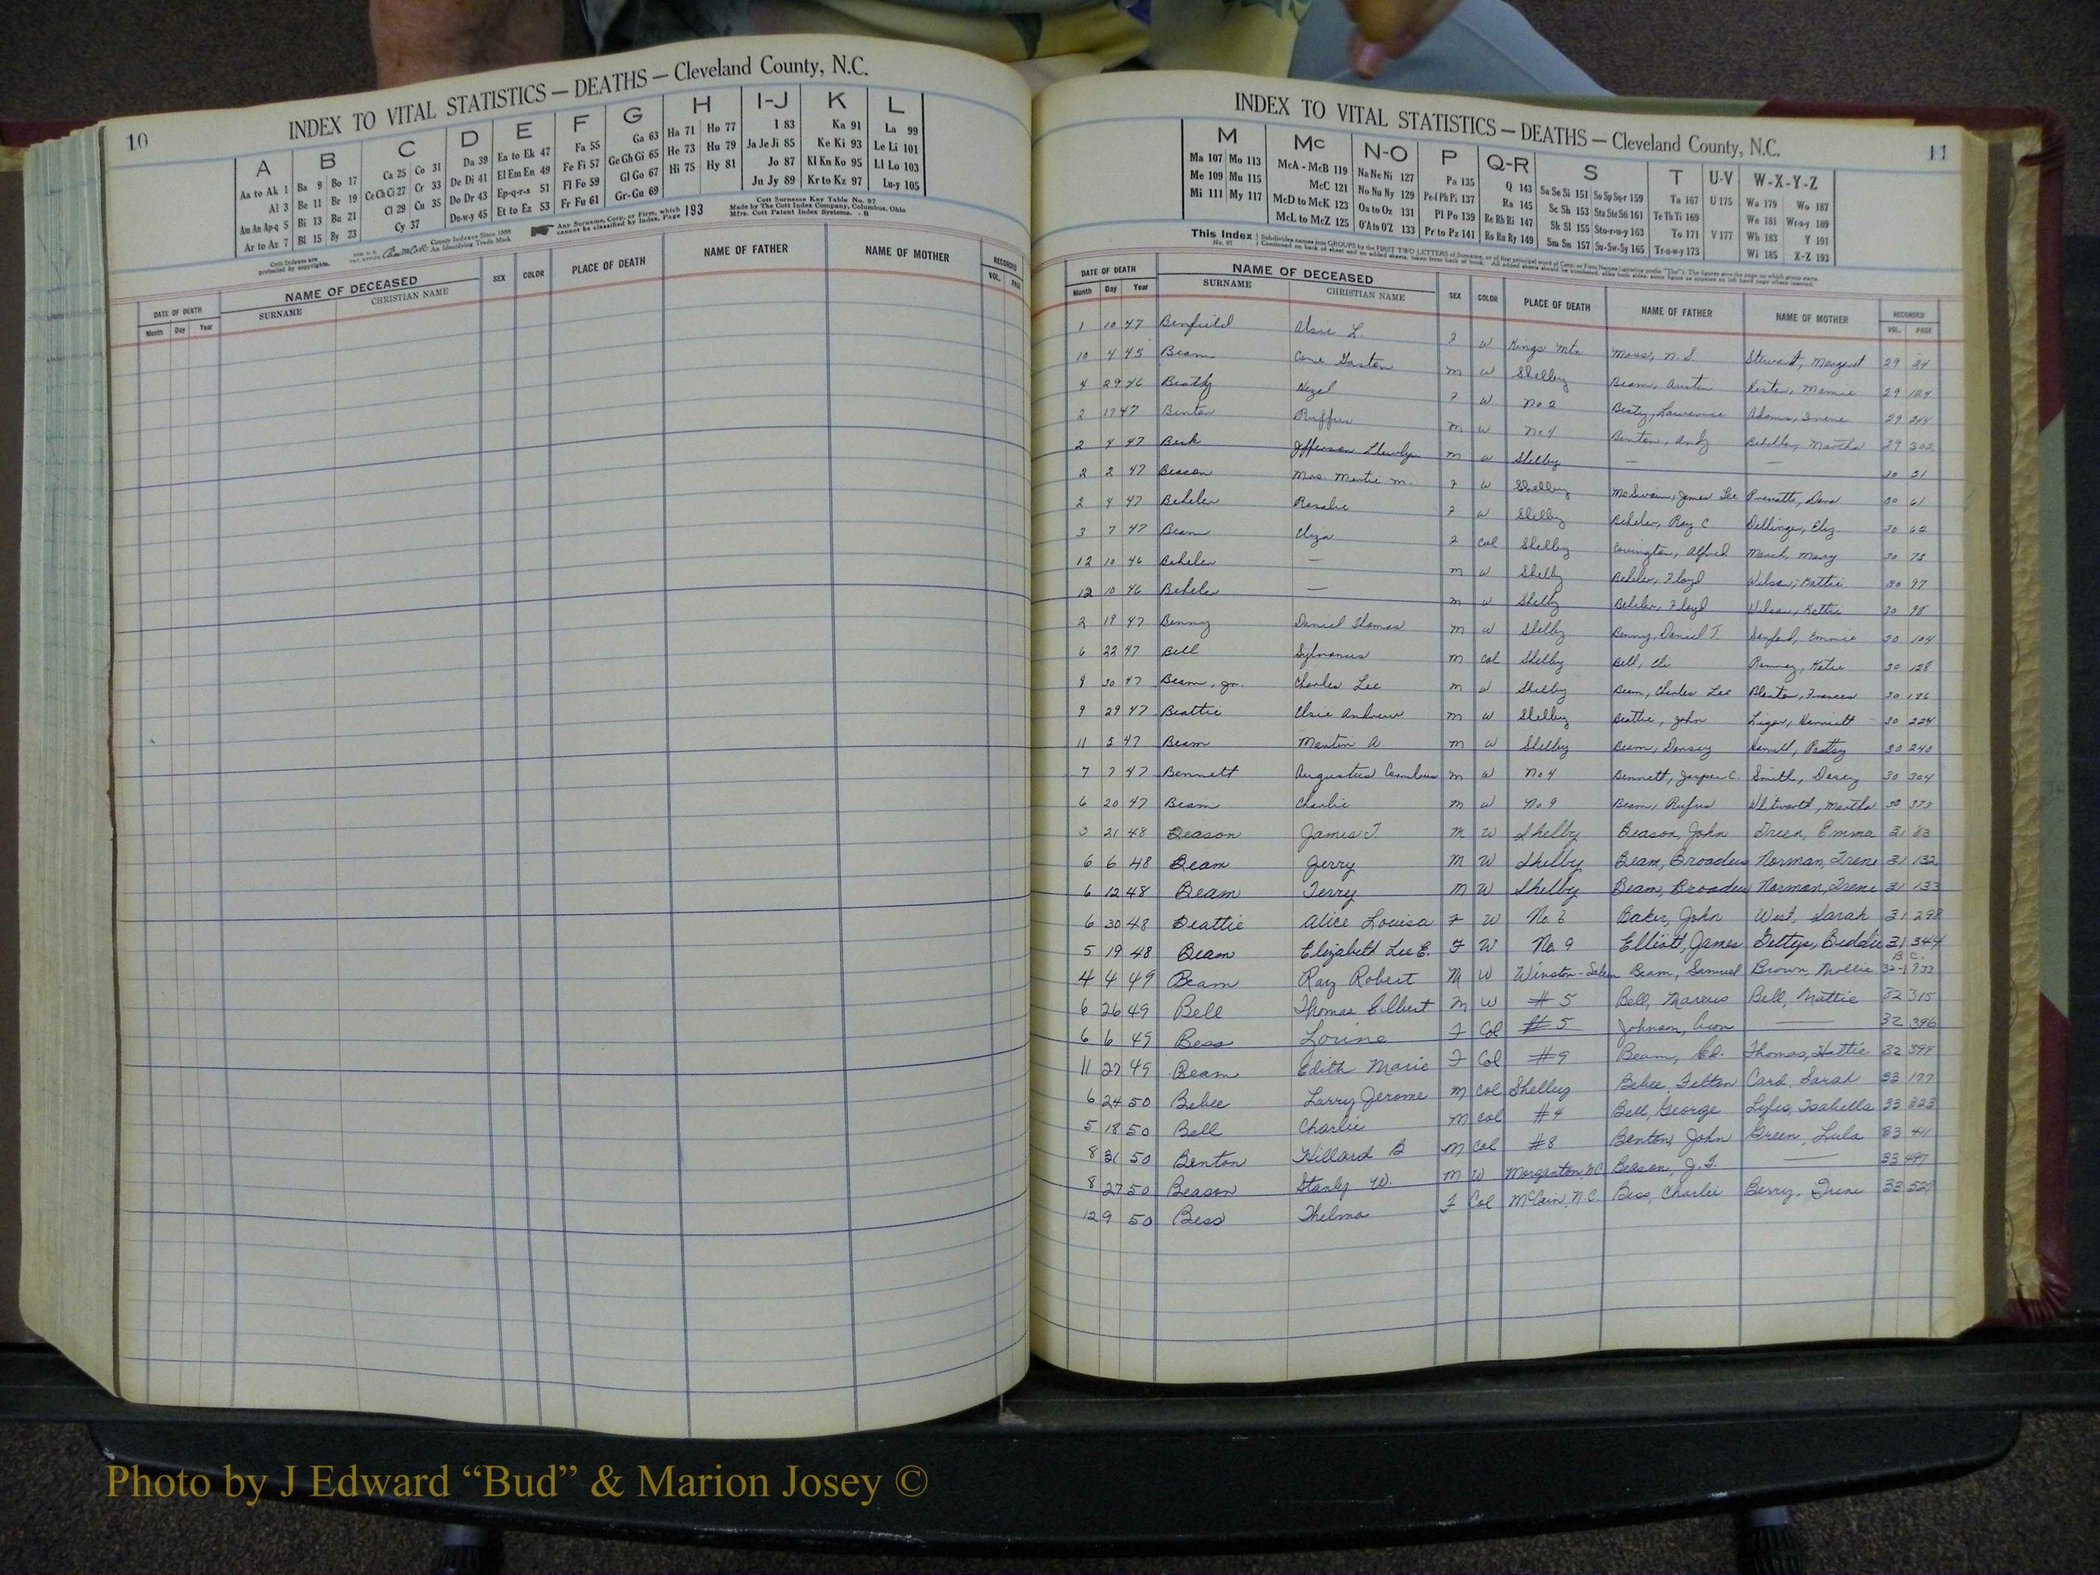 10
INDEX TO VITAL STATISTICS — DEATHS — Cleveland County, N.C.
A B C D E F G H I-J K L
Aa to Ak 1 Ba 9 Bo 17 Ca 25 Co 31 Da 39 Ea to Ek 47 Fa 55 Ga 63 Ha 71 Ho 77 I 83 Ka 91 La 99
Al 3 Be 11 Br 19 Ce Ch Ci 27 Cr 33 De Di 41 El Em En 49 Fe Fi 57 Ge Gh Gi 65 He 73 Hu 79 Ja Je Ji 85 Ke Ki 93 Le Li 101
Am An Ap-q 5 Bi 13 Bu 21 Cl 29 Cu 35 Do Dr 43 Ep-q-r-s 51 Fl Fo 59 Gl Go 67 Hi 75 Hy 81 Jo 87 Kl Kn Ko 95 Ll Lo 103
Ar to Az 7 Bl 15 By 23 Cy 37 Du-w-y 45 Et to Ez 53 Fr Fu 61 Gr-Gu 69 Ju Jy 89 Kr to Kz 97 Lu-y 105
Cott Indexes are protected by copyrights.
County Indexes Since 1888
An Identifying Trade Mark
Any Surname, Corp. or Firm, which cannot be classified by Index, Page 193
Cott Surname Key Table No. 97
Made by The Cott Index Company, Columbus, Ohio
Mfrs. Cott Patent Index Systems. - B
DATE OF DEATH NAME OF DECEASED SEX COLOR PLACE OF DEATH NAME OF FATHER NAME OF MOTHER RECORDED
Month Day Year SURNAME CHRISTIAN NAME VOL. PAGE
INDEX TO VITAL STATISTICS — DEATHS — Cleveland County, N.C.
11
M Mc N-O P Q-R S T U-V W-X-Y-Z
Ma 107 Mo 113 McA - McB 119 Na Ne Ni 127 Pa 135 Q 143 Sa Se Si 151 So Sp Sq-r 159 Ta 167 U 175 Wa 179 Wo 187
Me 109 Mu 115 McC 121 No Nu Ny 129 Pe-f Ph Pi 137 Ra 145 Sc Sh 153 Sta Ste Sti 161 Te Th Ti 169 We 181 Wr-u-y 189
Mi 111 My 117 McD to McK 123 Oa to Oz 131 Pl Po 139 Re Rh Ri 147 Sk Sl 155 Sto-r-u-y 163 To 171 V 177 Wh 183 Y 191
McL to McZ 125 O'A to O'Z 133 Pr to Pz 141 Ro Ru Ry 149 Sm Sn 157 Su-Sw-Sy 165 Tr-u-w-y 173 Wi 185 X-Z 193
This Index No. 97
DATE OF DEATH NAME OF DECEASED SEX COLOR PLACE OF DEATH NAME OF FATHER NAME OF MOTHER RECORDED
Month Day Year SURNAME CHRISTIAN NAME VOL. PAGE
1 10 47 Benfield L. F W Kings Mtn Moss, N.S Stewart, Margaret 29 24
10 4 45 Beam Gaston M W Shelby Beam, Austin Mamie 29 124
4 29 46 Beatty Hazel F W No 2 Beaty, Lawrence Adams, Irene 29
2 17 47 Benton Ruffin M W No 4 Benton, Andy Martha 29 302
2 4 47 Beck Jefferson Llewlyn M W Shelby — — 30 51
2 2 47 Beacon Mrs. Mertie M. F W Shelby McSwain, James Lee Dora 30 61
2 4 47 Beheler Rosalie F W Shelby Beheler, Ray C Dellinger, Eliz 30 62
3 7 47 Beam Eliza F Col Shelby Covington, Alfred Mary 30 78
12 10 46 Beheler — M W Shelby Beheler, Floyd Wilson, Kattie 30 97
12 10 46 Beheler — M W Shelby Beheler, Floyd Wilson, Kattie 30 98
2 19 47 Benny Daniel Thomas M W Shelby Benny, Daniel T. Sanford, Emmie 30 104
6 22 47 Bell Sylvanus M Col Shelby Bell, Eli Ramsey, Katie 30 128
8 30 47 Beam, Jr. Charles Lee M W Shelby Beam, Charles Lee Blanton, Frances 30 186
9 29 47 Beattie Elsie Andrew M W Shelby Beattie, John Harriett 30 224
11 5 47 Beam A. M W Shelby Beam, Dorsey Patsy 30 240
7 7 47 Bennett Augustus Columbus M W No 4 Bennett, Jasper C. Smith, Dosey 30 304
6 20 47 Beam Charlie M W No 9 Beam, Rufus Whitworth, Martha 30 373
3 21 48 Beason James T. M W Shelby Beason, John Green, Emma 31 83
6 6 48 Beam Jerry M W Shelby Beam, Broadus Norman, Irene 31 132
6 12 48 Beam Terry M W Shelby Beam, Broadus Norman, Irene 31 133
6 30 48 Beattie Alice Louisa F W No. 3 Baker, John West, Sarah 31 298
5 19 48 Beam Elizabeth Lee E. F W No. 9 Elliott, James Gettys, Biddie 31 344
4 4 49 Beam Ray Robert M W Winston-Salem Beam, Samuel Brown Mollie 32-1 B.C. 733
6 26 49 Bell Thomas Elbert M W #5 Bell, Marcus Bell, Mattie 32 315
6 6 49 Bess Lorine F Col #5 Johnson, — 32 396
11 27 49 Beam Edith Marie F Col #9 Beam, Ed. Thomas, Hattie 32 399
6 24 50 Bebee Larry Jerome M Col Shelby Bebee, Felton Card, Sarah 33 177
5 18 50 Bell Charlie M Col #4 Bell, George Lyles, Isabella 33 323
8 31 50 Benton Hillard B M Col #8 Benton, John Green, Lula 33 411
8 27 50 Beason Stanly W. M W Morganton, N.C. Beason, J.F. — 33 497
12 9 50 Bess Thelma F Col McCain, N.C. Bess, Charlie Berry, Irene 33 529
Photo by J Edward “Bud” & Marion Josey ©